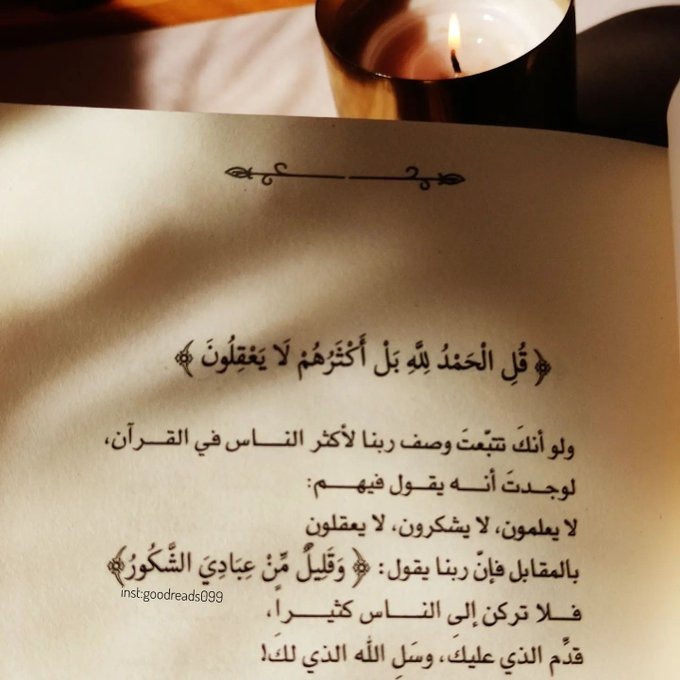 ﴿ قُلِ الْحَمْدُ لِلَّهِ بَلْ أَكْثَرُهُمْ لَا يَعْقِلُونَ ﴾
ولو أنكَ تتبّعتَ وصف ربنا لأكثر النـاس في القـرآن،
لوجدتَ أنـه يقول فيهـم:
لا يعلمون، لا يشكرون، لا يعقلون
بالمقابل فإنّ ربنا يقول: ﴿ وَقَلِيلٌ مِّنْ عِبَادِيَ الشَّكُورُ﴾
inst:goodreads099
فـلا تركن إلى النـاس كثيـراً،
قدِّم الذي عليكَ، وسَلِ الله الذي لكَ!